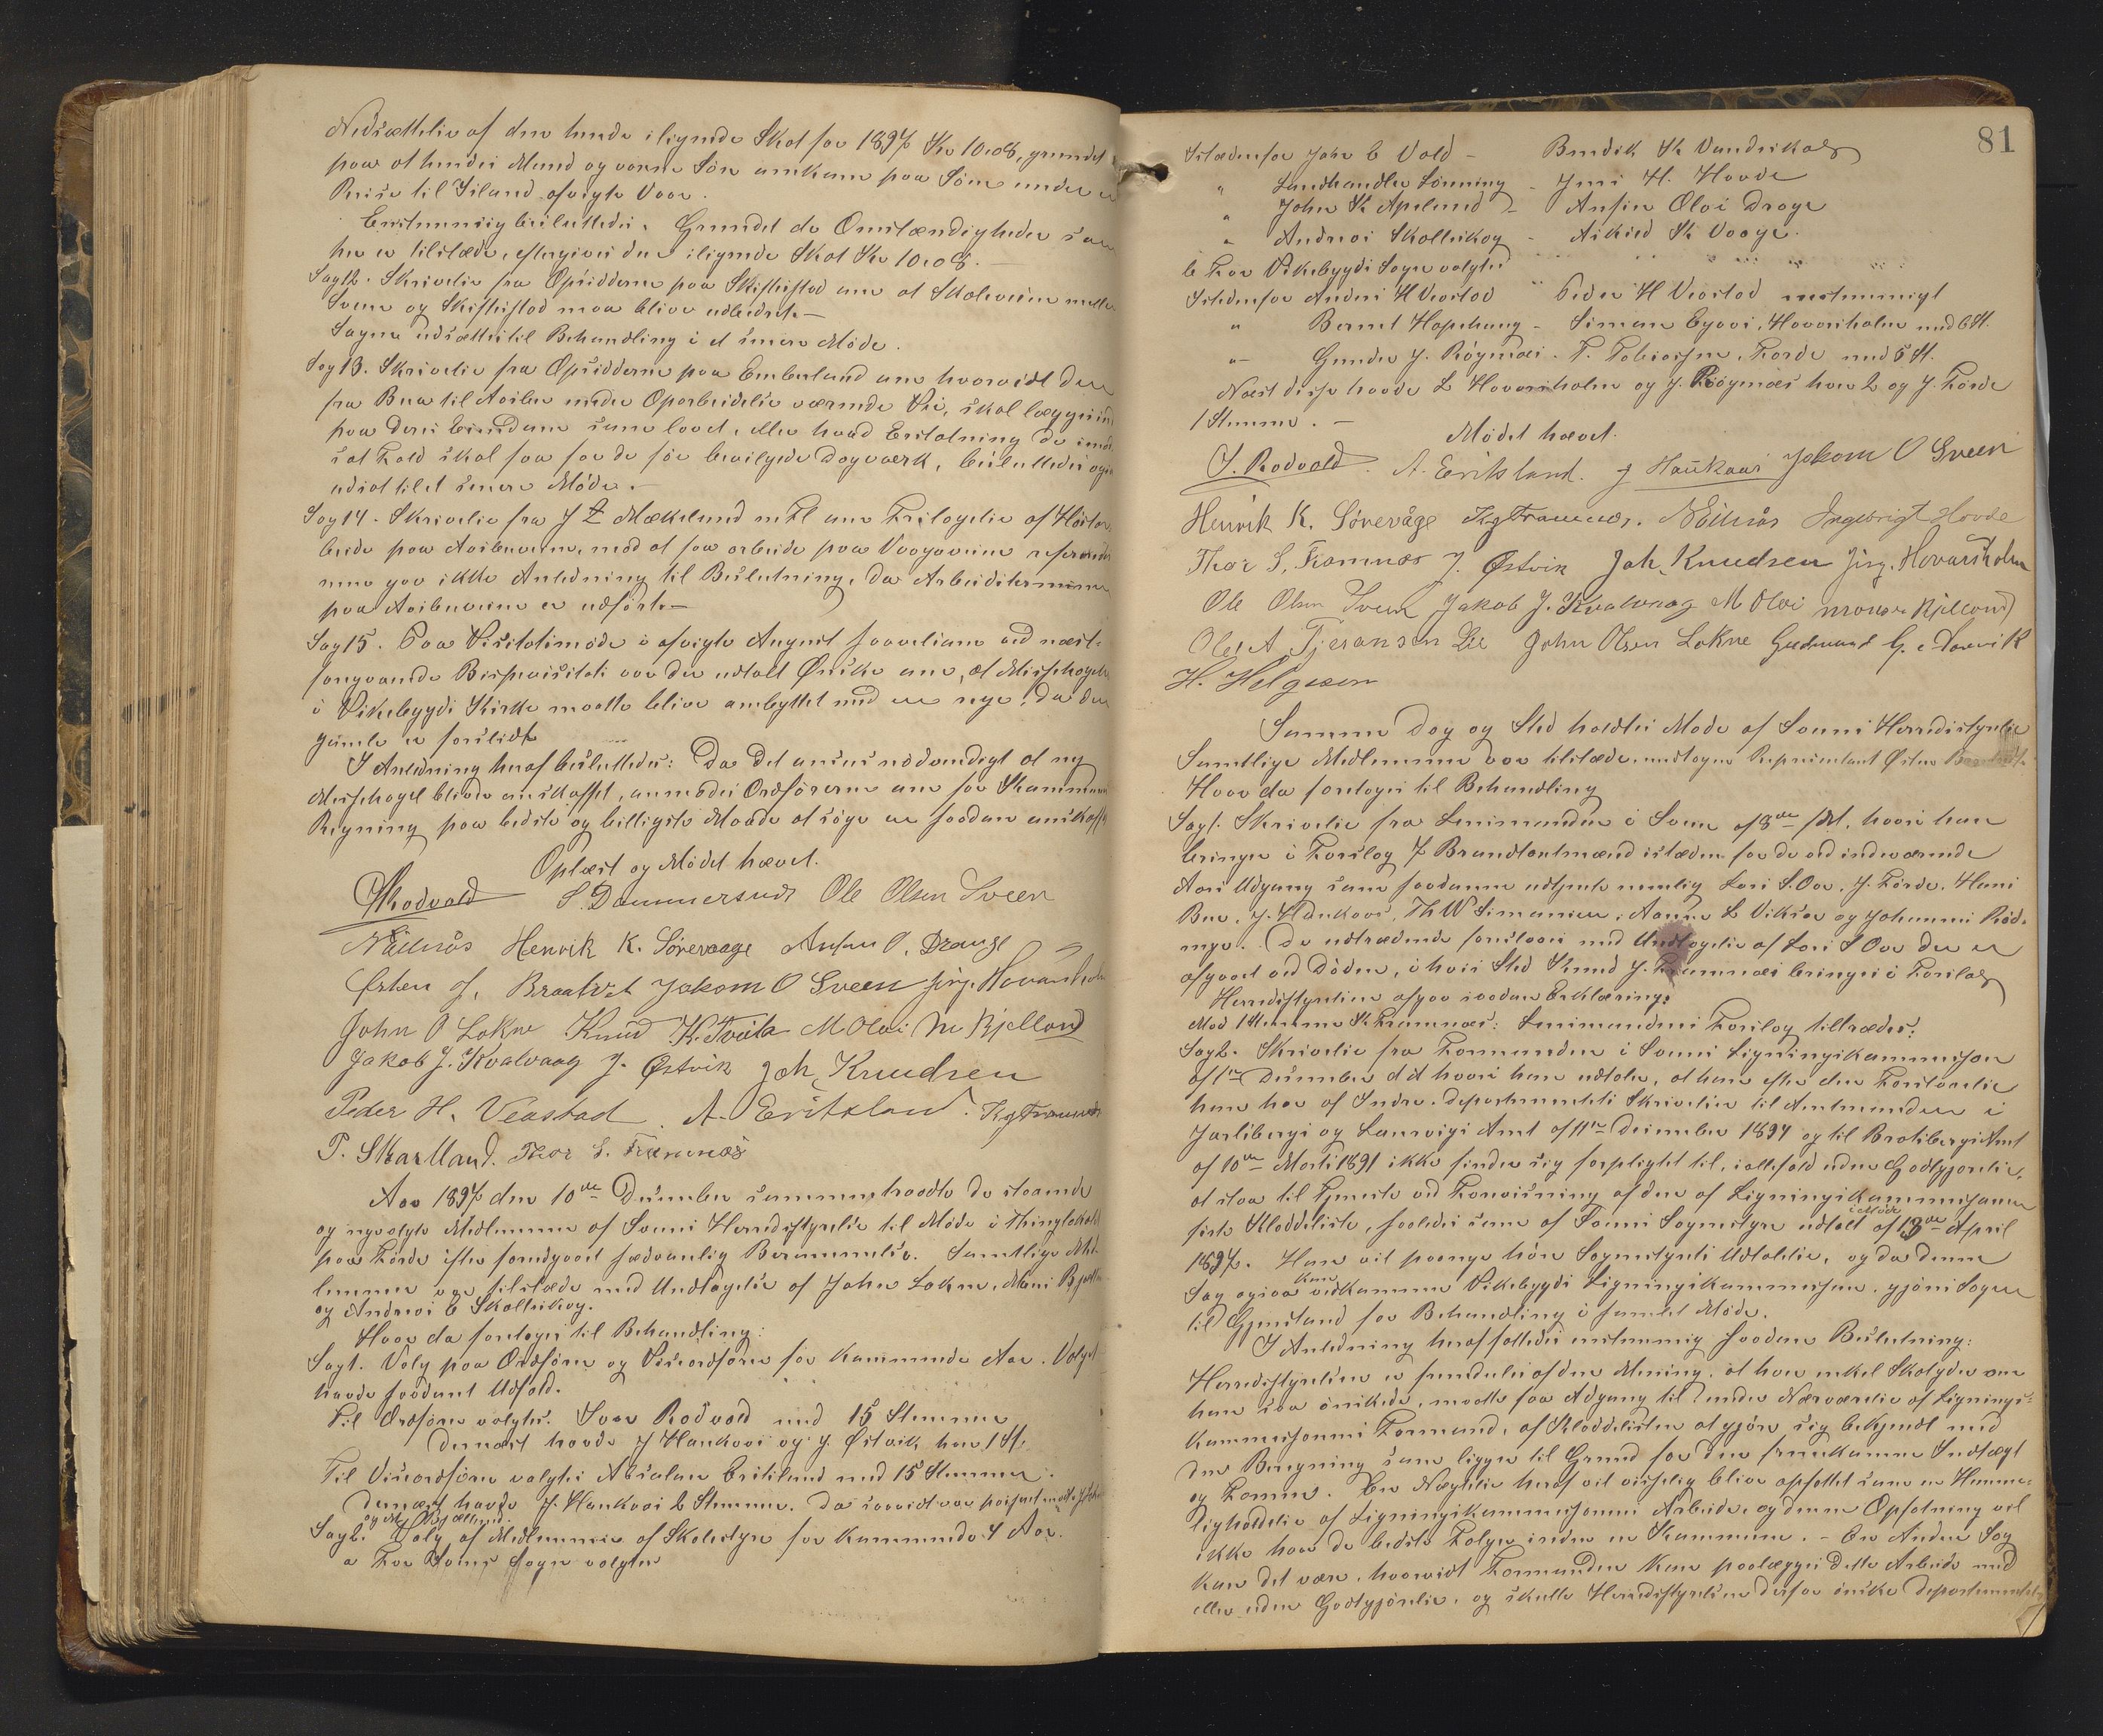 Nedsættelse af den hende ilignede Skat for 1897 Kr 10.08, grundet
paa at hendes Mand og voxne Søn omkom paa Søen under en
Reise til Island afvigte Vaar.
Enstemmig besluttedes: Grundet de Omstændigheder som
her er tilstæde, eftergives den ilignede Skat Kr 10.08.—
Sag 12. Skrivelse fra Opsidderne paa Skisthistad om at Skoleveien mellem
Sveen og Skisthistad maa blive udbedret.—
Sagen udsættes til Behandling i et senere Møde.
Sag 13. Skrivelse fra Opsidderne paa Emberland om hvorvidt den
fra Bua til Aasbu under Oparbeidelse værende Vei, skal lægges ind
paa deres Eiendom som lovet, eller hvad Erstatning de i mod-
sat Fald skal faa for de før bevilgede Dagværk, besluttedes ogsaa
udsat til et senere Møde.—
Sag 14. Skrivelse fra J Mækeland m Fl om Fritagelse af Høstar-
beide paa Aasbuveien, mod at faa arbeide paa Vaageveien
gav ikke Anledning til Beslutning, da Arbeidsterminen
paa Aasbuveien er udført.—
Sag 15. Paa Visitatsmøde i afvigte August Foranledning ved næst-
foregaaende Bispevisitats var der udtalt Ønske om, at Messehagelen
i Vikebygds Kirke maatte blive ombyttet med en nye, da den
gamle er forslidt.
I Anledning heraf besluttedes: Da det ansees nødvendigt at ny
Messehagel bliver anskaffet, anmodes Ordføreren om for Kommunens
Regning paa bedste og billigste Maade at søge en saadan anskaffet
Oplæst og Mødet hævet.
S Rødvold S. Dommersnes Ole Olsen Sveen
N Ølnøs Henrik K. Sørevaage Anfin O. Drange
Østen J. Braatvet Jakom O Sveen Jørg. Hovarsholm
John O Lokne Knud K. Tveita M Olai M. Kjelland
Jakob J. Kvalvaag J. Østvik Joh. Knudsen
Peder H. Veastad. A. Eriksland. K G Framnes
P. Skartland. Thor S. Framnæs
Aar 1897 den 10de December sammenhaadte de staaende
og nyvalgte Medlemmer af Søvni Herredsstyrelse til Møde i Thinglokalet
paa Førde efter forudgaaet sædvanlig Berammelse. Samtlige Med-
lemmer var tilstæde med Undtagelse af John Lokne, Mons Kjelland
og Andreas E Skolleskog.
Hvor da foretoges til Behandling:
Sag 1. Valg paa Ordfører og Viseordfører for kommende Aar. Valget
havde saadant Udfald.
Til Ordfører valgtes: Svar Rødvold med 15 Stemmer
dernæst havde J Haukaas og J. Østvik hver 1 St.
Til Viseordfører valgtes Absalon Eriksland med 15 Stemmer.
dernæst havde J. Haukaas 2 Stemmer.
og M. Kjelland.
Sag 2. Valg af Medlemmer af Skolestyre for kommende 4 Aar.
a For Søvns Sogn valgtes
81
Istedenfor John E Vold – Bendik K Vandaskog
" Landhandler Lønning – Jens H. Hovde
" John K Apeland – Anfin Olai Drage
" Andreas Skolleskog – Askild K Vaage.
b For Vikebygds Sogn valgtes
Istedenfor Anders H Veastad " Peder H Veastad enstemmigt
" Bernt Hopshaug – Simon Egaas, Hovarsholm med 6 St.
" Gunder J. Røgenæs. T. Tobiassen, Førde med 5 St.
Næst disse havde L Hovarsholm og J. Røgenæs hver 2 og J. Førde
1 Stemme. –
Mødet hævet.
S. Rødvold. A. Eriksland. J Haukaas Jakom O Sveen
Henrik K. Sørevåge K G Framnes. N Ølnøs Ingebrigt Hovde
Thor S. Framnæs J. Østvik Joh. Knudsen Jørg. Hovarsholm
Ole Olsen Sveen Jakob J. Kvalvaag M Olai Mons Kjelland
Ole A Tjeransen Lie John Olsen Lokne Gudmund G. Saarvik
H. Helgesen
Samme Dag og Sted holdtes Møde af Søvns Herredsstyrelse
Samtlige Medlemmer var tilstæde, undtagen Repræsentant Østen Braatvet.
Hvor da foretoges til Behandling
Sag 1. Skrivelse fra Lensmanden i Søvn af 8de ds, hvori han
bringer i Forslag 7 Brandtaxtmænd istæden for de ved indeværende
Aars Udgang som saadanne udtræde nemlig Lars S. Aar, J. Førde, Hans
Bua, J. Haukaas, Th W Simonsen, Aanen L Viksør og Johannes Rød-
enge. De udtrædende foreslaaes med Undtagelse af Lars S Aar der er
afgaaet ved Døden, i hvis Sted Knud J. Framnæs bringes i Forslag
Herredsstyrelsen afgav saadan Erklæring:
Mod 1 Stemme K. Framnæs: Lensmandens Forslag tiltrædes.
Sag 2. Skrivelse fra Formanden i Søvns Ligningskommission
af 1te December d A hvori han udtaler, at han efter den Forstaaelse
han har af Indre-departementets Skrivelse til Amtmanden i
Jarlsbergs og Laurvigs Amt af 11te December 1894 og til Bratsbergs Amt
af 10de Marts 1891 ikke finder sig forpligtet til, iallefald uden Godtgjørelse,
at staa til Tjeneste ved Forevisning af den af Ligningskommissionen
førte Kladdeliste, saaledes som af Søvns Sognestyre udtalt i Møde af 13de April
1897. Han vil paany høre Sognestyrets Udtalelse, og da denne
Sag ogsaa kan vedkomme Vikebygds Ligningskommission, gjøres Sagen
til Gjenstand for Behandling i samlet Møde.
I Anledning heraf fattedes enstemmig saadan Beslutning:
Herredsstyrelsen er fremdeles af den Mening, at hver enkel Skatyder om
han saa ønskede, maatte faa Adgang til under Nærværelse af Lignings-
kommissionens Formand, af Kladdelisten at gjøre sig bekjendt med
den Beregning som ligger til Grund for den fremkomne Indtægt
og Formue. En Nægtelse heraf vil visselig blive opfattet som en Hemme-
ligholdelse af Ligningskommissionens Arbeide, og denne Opfatning vil
ikke have de bedste Følger inden en Kommune. – En Anden Sag
kan det være, hvorvidt Formanden kan paalægges dette Arbeide med
eller uden Godtgjørelse, og skulle Herredsstyrelsen derfor ønske Departementets